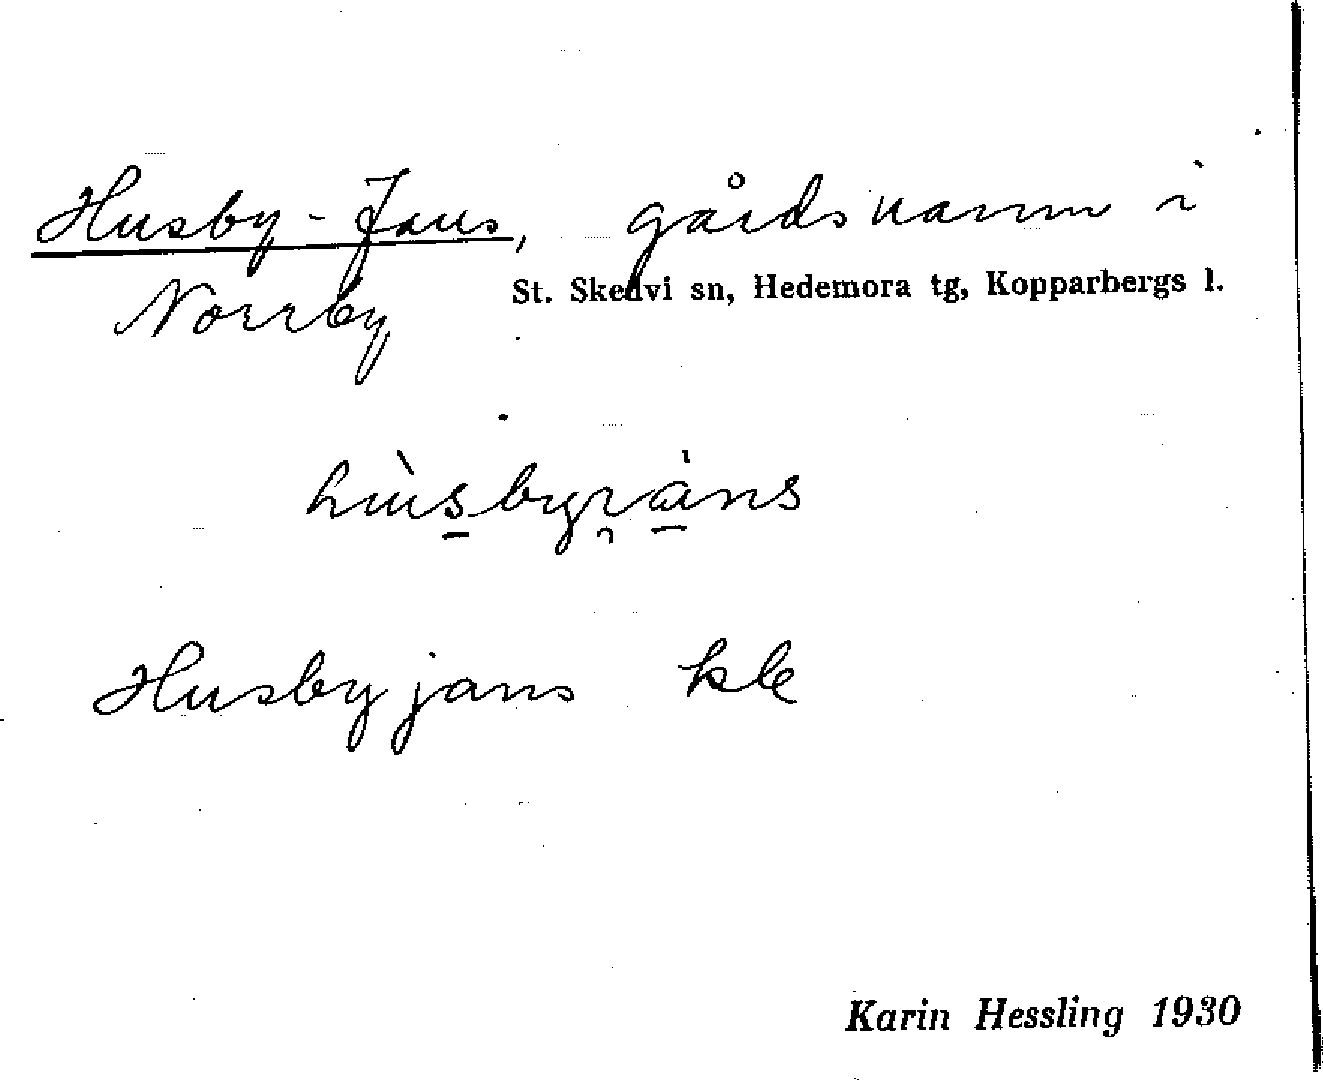 Husby-Jans, gårdsnamn i
Norrby St. Skedvi sn, Hedemora tg, Kopparbergs l.
Husbyjans kle
Karin Hessling 1930